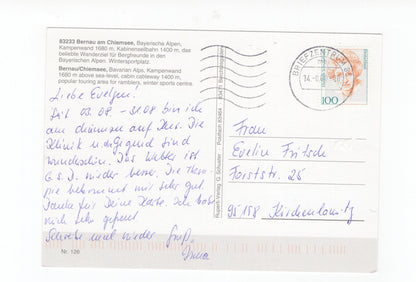 83233 Bernau am Chiemsee, Bayerische Alpen,
Kampenwand 1680 m, Kabinenseilbahn 1400 m, das
beliebte Wanderziel für Bergfreunde in den
Bayerischen Alpen. Wintersportplatz.
Bernau/Chiemsee, Bavarian Alps, Kampenwand
1680 m above sea-level, cabin cableway 1400 m,
popular touring area for ramblers, winter sports centre.
Liebe Evelyn!
Seit 03.08. - 31.08 bin ich
am Chiemsee auf Kur. Die
Klinik u. die Gegend sind
wunderschön. Das Wetter ist
G.s.D. wieder besser. Die Thera-
pie bekommt mir sehr gut.
Danke für Deine Karte. Ich habe
mich sehr gefreut
Schreibe mal wieder Gruß,
Nr. 126
Postfach 83464
BRIEFZENTRUM
100
Frau
Eveline Fritsch
Forststr. 26
95158 Kirchenlamitz